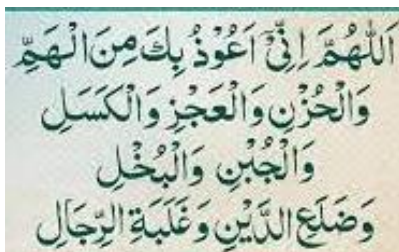 اَللّٰهُمَّ اِنِّیْۤ اَعُوْذُ بِكَ مِنَ الْهَمِّ
وَالْحُزْنِ وَالْعَجْزِ وَالْكَسَلِ
وَالْجُبْنِ وَالْبُخْلِ
وَضَلَعِ الدَّیْنِ وَغَلَبَةِ الرِّجَالِ